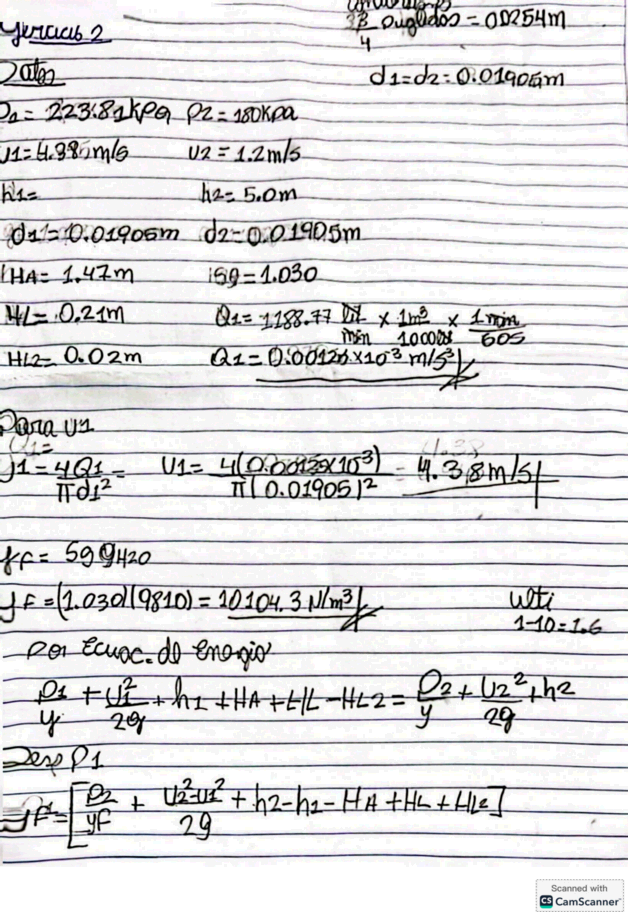 3/4 pulgadas = 0.0254m
Ejercicio 2
Datos
d1=d2=0.01905m
P1= 223.81kpa P2=180kpa
U1=4.385m/s U2=1.2m/s
h1= h2=5.0m
d1=0.01905m d2=0.01905m
HA= 1.47m sg=1.030
HL= 0.21m Q1=1188.77 lit/min × 1m³/1000lit × 1min/60s
HL2= 0.02m Q1= ×10⁻³ m/s³
Para U1
U1=
U1= 4Q1/πd1² = U1= 4( ×10⁻³)/π(0.01905)² = 4.38m/s
γF= Sg γH20
γF=(1.030)(9810)=10104.3 N/m³
ulti
1-10=1.6
Por Ecuac. de Energia
P1/γ + U1²/2g + h1 + HA + HL - HL2 = P2/γ + U2²/2g + h2
Desp P1
γF=[P2/γF + U2²-U1²/2g + h2-h1-HA+HL+HL2]
Scanned with
CS CamScanner